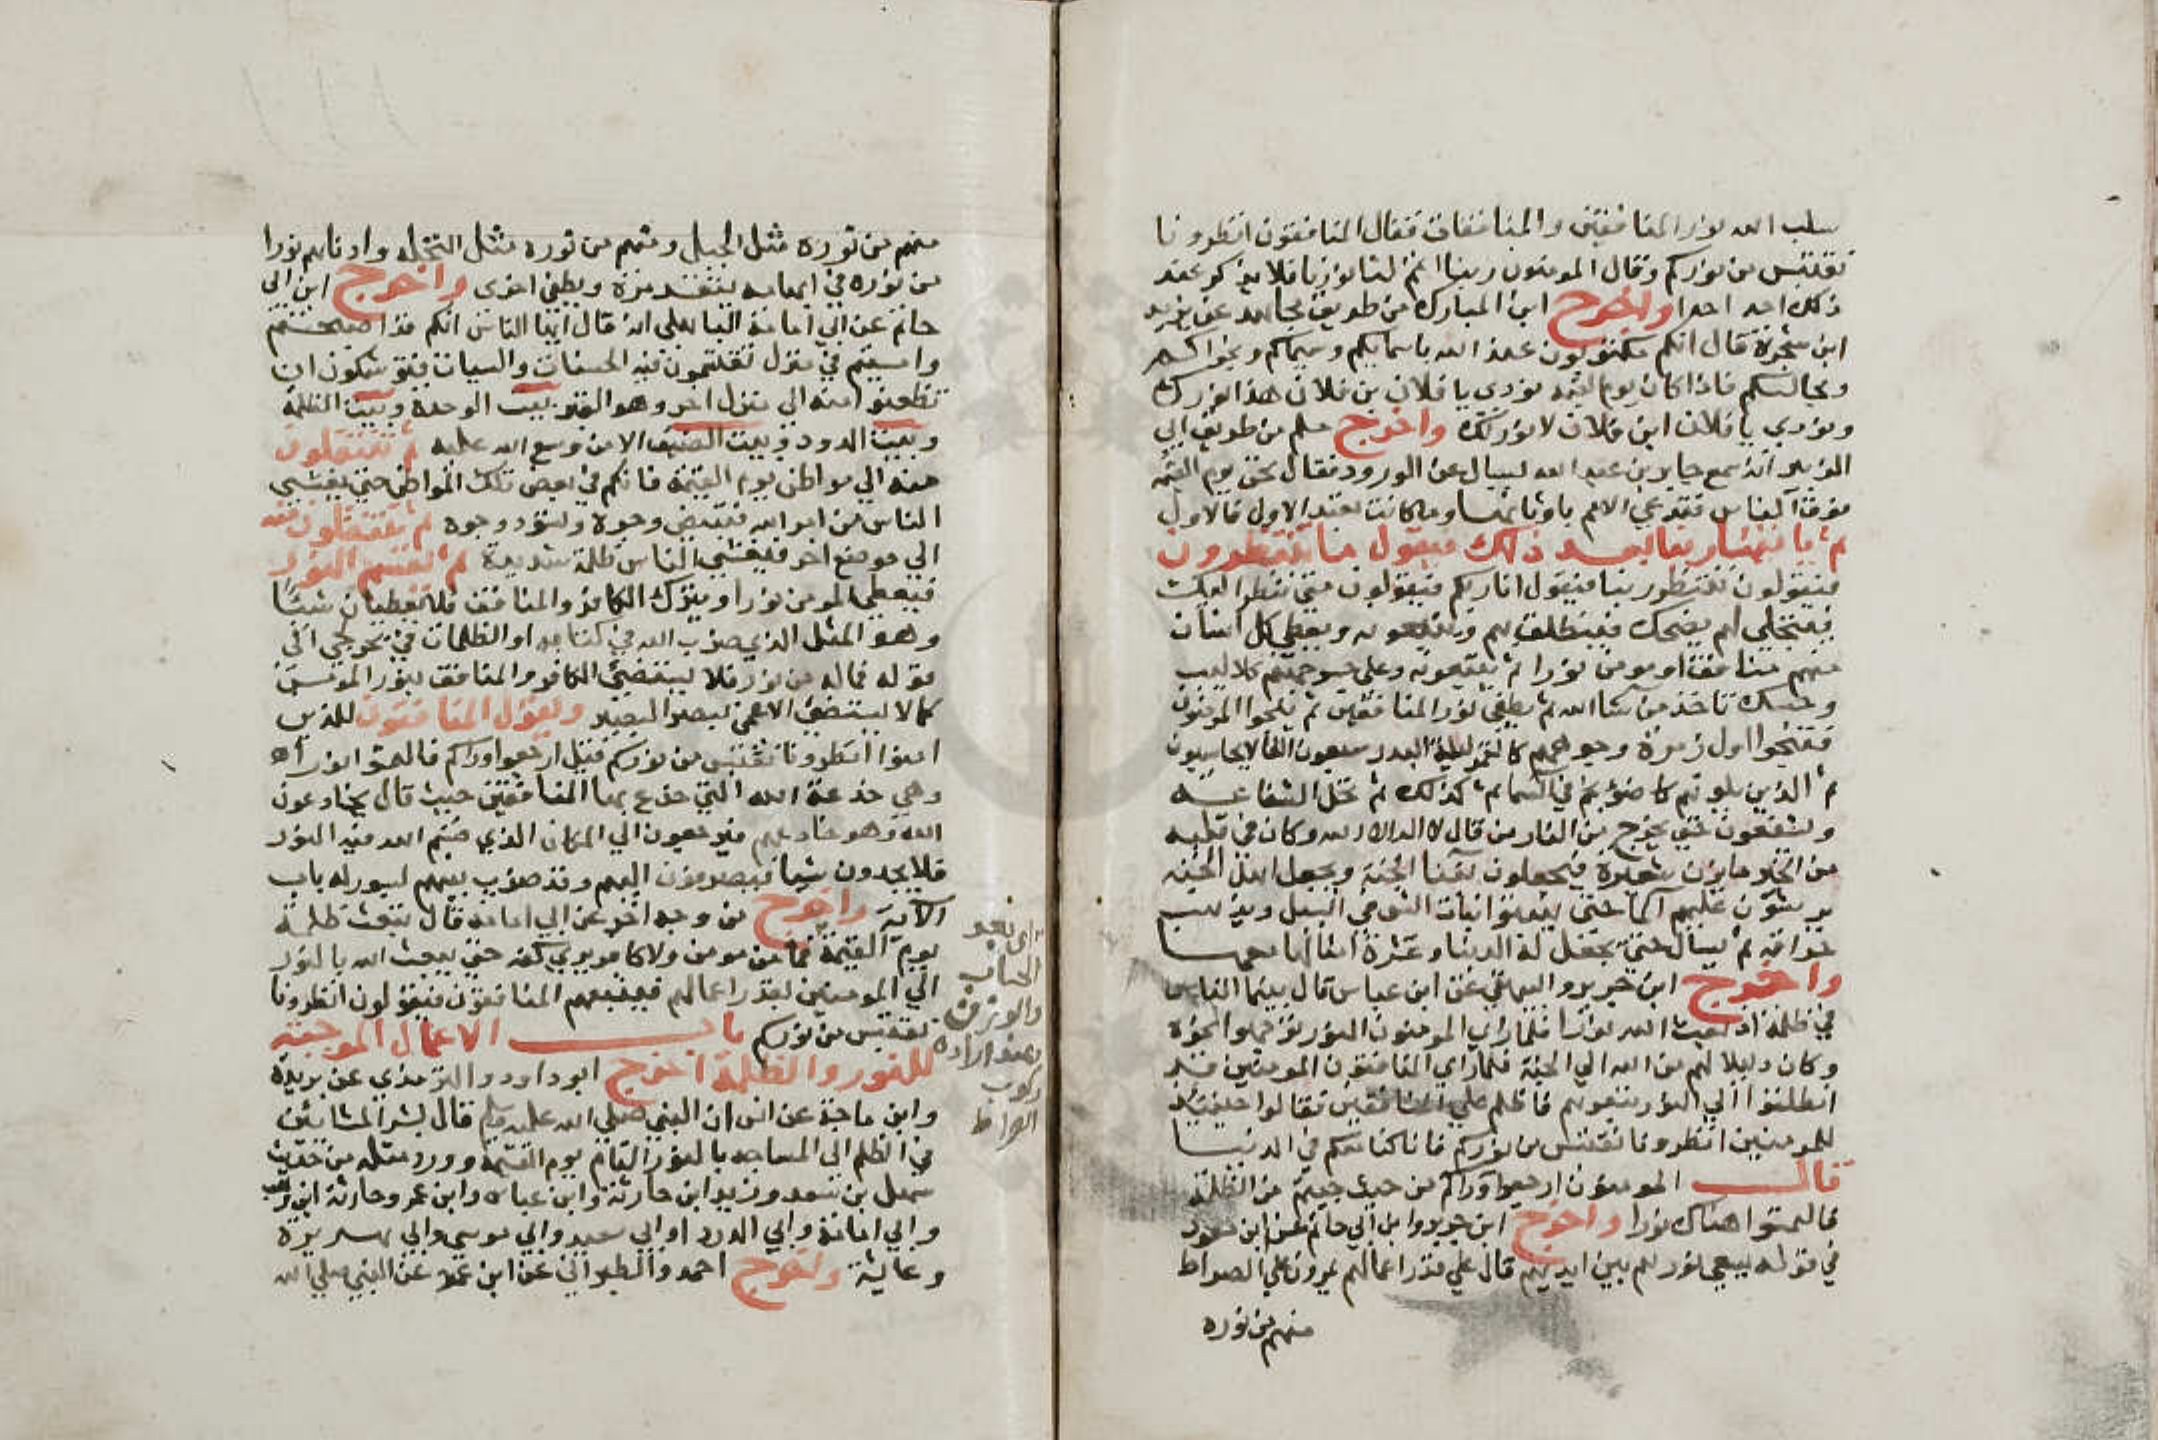 سلب الله نور المنافقين والمنافقات فقال المنافقون انظرونا
نقتبس من نوركم وقال المومنون ربنا اتمم لنا نورنا فلا يذكر عند
ذلك احد احدا واخرج ابن المبارك من طريق مجاهد عن يزيد
ابن شجرة قال انكم مكتوبون عند الله باسمايكم وسيماكم ونجواكم
ومجالسكم فاذا كان يوم القيمة نودي يا فلان بن فلان هذا نورك
ونودي يا فلان ابن فلان لا نور لك واخرج مسلم من طريق ابي
الزبير انه سمع جابر بن عبد الله يسال عن الورود فقال نحن يوم القيمة
الناس فتدعي الامم باوثانها وما كانت تعبد الاول فالاول
ثم ياتينا ربنا بعد ذلك فيقول ما تنتظرون
فيقولون ننتظر ربنا فيقول انا ربكم فيقولون حتى ننظر اليك
فيتجلي لهم يضحك فينطلق بهم ويتبعونه ويعطي كل انسان
منهم منافق او مومن نورا ثم يتبعونه وعلى جسر جهنم كلاليب
وحسك تاخذ من شا الله ثم يطفي نور المنافقين ثم ينجوا المومنون
فتنجوا اول زمرة وجوههم كالقمر ليلة البدر سبعون الفا لا يحاسبون
ثم الذين يلونهم كاضوء نجم في السما ثم كذلك ثم تحل الشفاعه
ويشفعون حتى يخرج من النار من قال لا اله الا الله وكان في قلبه
من الخير ما يزن شعيرة فيجعلون بفنا الجنة ويجعل اهل الجنة
يرشون عليهم الما حتى ينبتوا نبات الشي في السيل ويذهب
حراقه ثم يسال حتى تجعل له الدنيا وعشرة امثالها معها
واخرج ابن جرير والبيهقي عن ابن عباس قال بينما الناس
في ظلمة اذ بعث الله نورا فلما راي المومنون النور توجهوا نحوه
وكان دليلا لهم من الله الي الجنة فلما راي المنافقون المومنين قد
انطلقوا الي النور يتبعوهم فاظلم علي المنافقين فقالوا حينئذ
للمومنين انظرونا نقتبس من نوركم فانا كنا معكم في الدنيا
قال المومنون ارجعوا وراكم من حيث جيتم من الظلمة
فالتمسوا هناك نورا واخرج ابن جرير وابن ابي حاتم عن ابن مسعود
في قوله يسعى نورهم بين ايديهم قال علي قدر اعمالهم يمرون علي الصراط
منهم من نوره
منهم من نوره مثل الجبل ومنهم من نوره مثل النخلة وادناهم نورا
من نوره في ابهامه يتقد مرة ويطفي اخرى واخرج ابن ابي
حاتم عن ابي امامة الباهلي انه قال ايها الناس انكم قد اصبحتم
وامسيتم في منزل تقتسمون فيه الحسنات والسيات وتوشكون ان
تظعنوا منه الي منزل اخر وهو القبر بيت الوحدة وبيت الظلمة
وبيت الدود وبيت الضيق الا من وسع الله عليه ثم تنتقلون
منه الي مواطن يوم القيمة فانكم في بعض تلك المواطن حتى يغشي
الناس من امر الله فتبيض وجوه وتسود وجوه ثم تنتقلون منه
الي موضع اخر فيغشي الناس ظلمة شديدة ثم يقسم النور
فيعطي المومن نورا ويترك الكافر والمنافق فلا يعطيان شيئا
وهو المثل الذي ضرب الله في كتابه او كظلمات في بحر لجي الى
قوله فماله من نور فلا يستضئ الكافر والمنافق بنور المومن
كما لا يستضئ الاعمى ببصر البصير ويقول المنافقون للذين
امنوا انظرونا نقتبس من نوركم قيل ارجعوا وراكم فالتمسوا نورا
وهي خدعة الله التي خدع بها المنافقين حيث قال يخادعون
الله وهو خادعهم فيرجعون الي المكان الذي قسم الله فيه النور
فلا يجدون شيا فيصرفون اليهم وقد ضرب بينهم بسور له باب
الاية واخرج من وجه اخر عن ابي امامه قال تبعث ظلمة
يوم القيمة فما من مومن ولا كافر يري كفه حتى يبعث الله بالنور
الي المومنين بقدر اعمالهم فيتبعهم المنافقون فيقولون انظرونا
نقتبس من نوركم باب الاعمال الموجبة
للنور والظلمة اخرج ابو داود والترمذي عن بريدة
وابن ماجة عن انس ان النبي صلى الله عليه وسلم قال بشر المشائين
في الظلم الى المساجد بالنور التام يوم القيمة وورد مثله من حديث
سهل بن سعد وزيد ابن حارثة وابن عباس وابن عمر وحارثة ابن وهب
وابي امامة وابي الدرداء وابي سعيد وابي موسي وابي هريرة
وعايشة واخرج احمد والطبراني عن ابن عمر عن النبي صلى الله
اي بعد
الحساب
والوزن
وعند ارادة
ركوب
الصراط